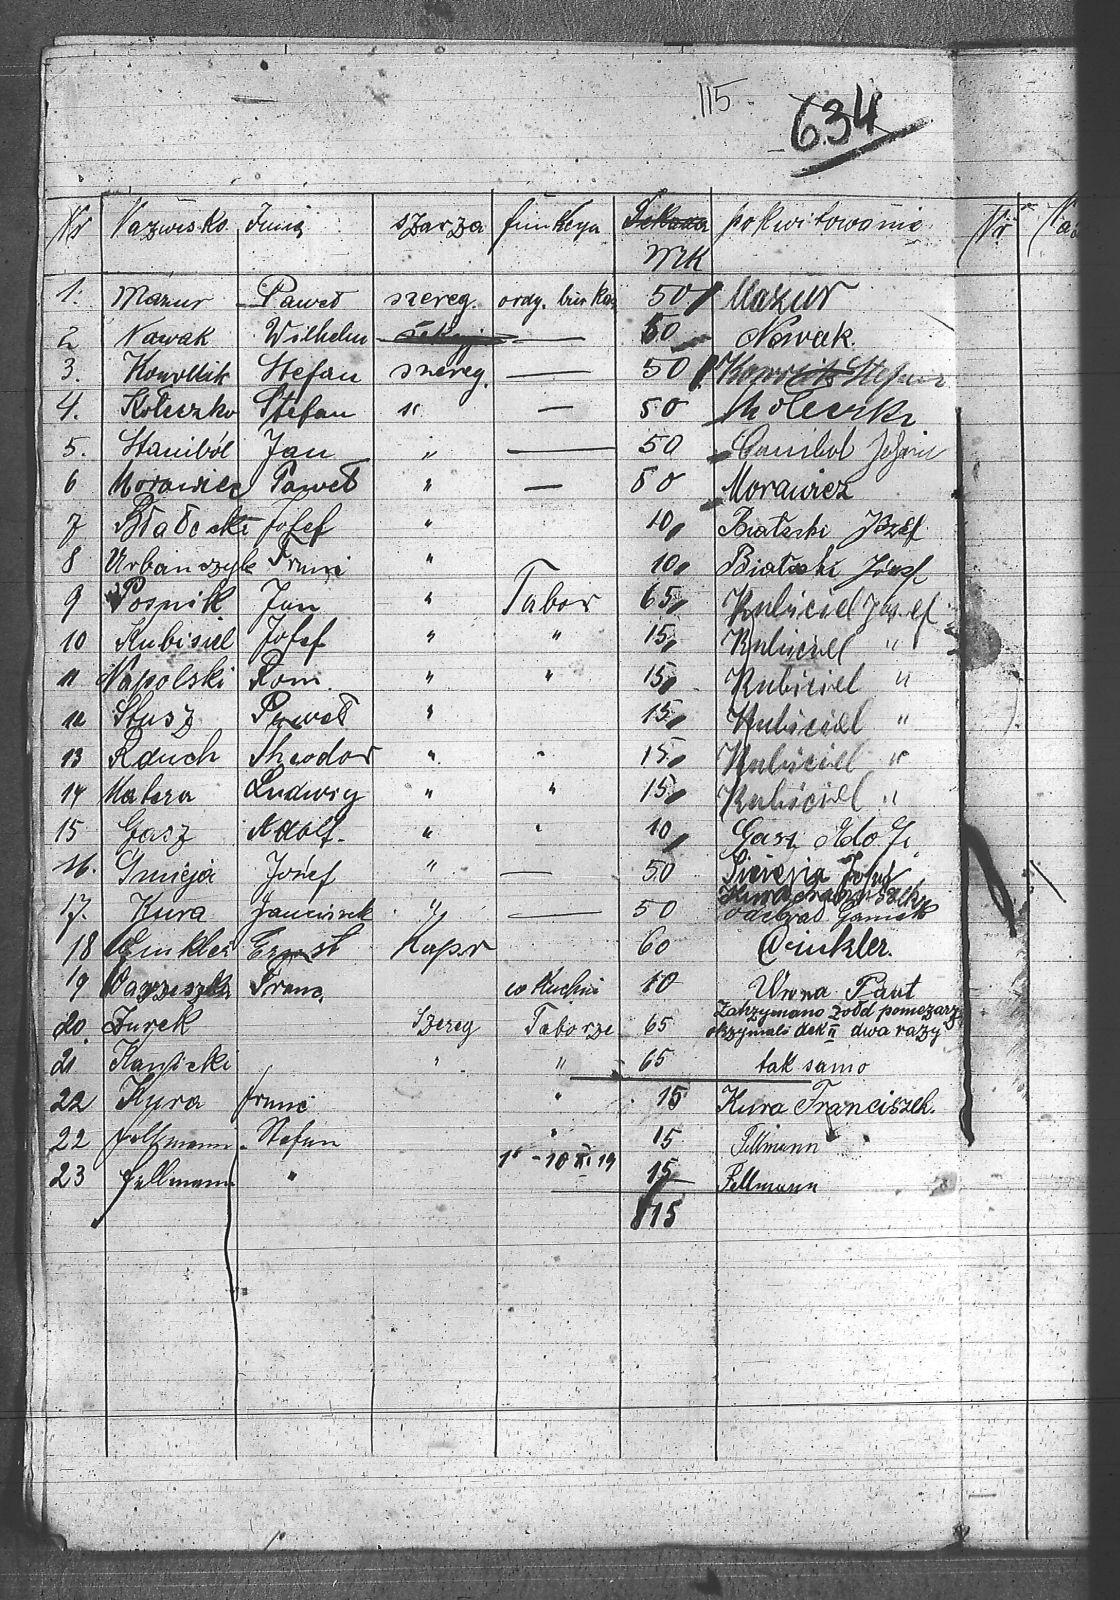 115.
634
Nr Nazwisko Imię szarża funkcya pokwitowanie Nr
Mrk
1. Mazur Paweł szereg. ordy. 50 Mazur
2 Nawak Wilhelm — 50 Nowak.
3. Konollik Stefan szereg. — 50 Stefan
4. Koleczko Stefan " — 50 Koleczko
5. Staniból Jan " — 50
6 Morawiec Paweł " — 50 Morawiez
7 Josef " 10 Białecki Józef
8 Urbanczyk Franc " 10 Białecki Józef
9 Posnik Jan " Tabor 65 Kubiciel Josef
10 Kubisiel Josef " " 15 Kubiciel "
11 Napolski Rom. " " 15 Kubiciel "
12 Stusz Paweł " 15 Kubiciel "
13 Rduch Theodor " " 15 Kubiciel "
14 Matera Ludwig " " 15 Kubiciel "
15 Gasz Adolf. " " 10 Gasz Adolf.
16. Śmieja Józef " — 50
17. Kura " — 50 odebrał
18 Winkler Ernst Kapr 60 Winkler.
19 Franc. w Kuchni 10
20. Żurek Szereg Taborze 65 otrzymali dek II dwa razy
21 Kanicki " " 65 tak samo
22 Kura Franc " 15 Kura Franciszek.
22 Fellmann Stefan " 15 Fellmann
23 Fellmann " 1 - 10 XI 19 15 Fellmann
815